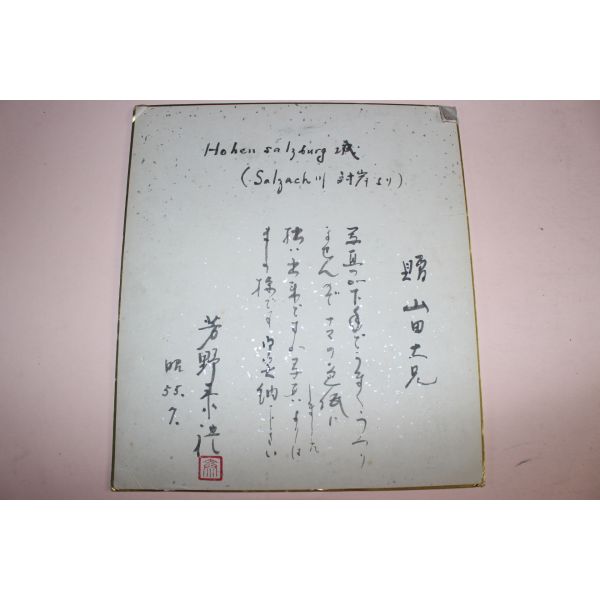 Hohen salzburg 城
(Salzach川 対岸より)
贈 山田大兄
写真が下手でうまくうつり
ませんで ナマの色紙に
しました
拙い出来ですが写真よりは
ましな様です 御笑納下さい
昭55.7.
芳野